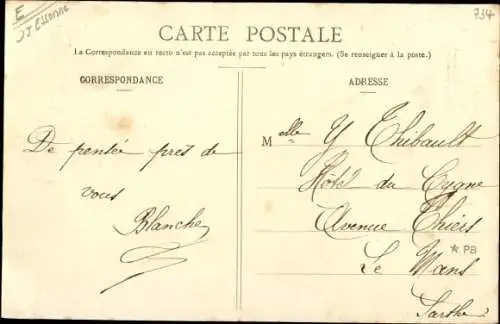 E
St Essonne
734
CARTE POSTALE
La Correspondance au recto n'est pas acceptée par tous les pays étrangers. (Se renseigner à la poste.)
CORRESPONDANCE
De pensée près de
vous
Blanche
ADRESSE
Melle Y Thibault
Hôtel du Cygne
Avenue Thiers
Le Mans
Sarthe
★ PB